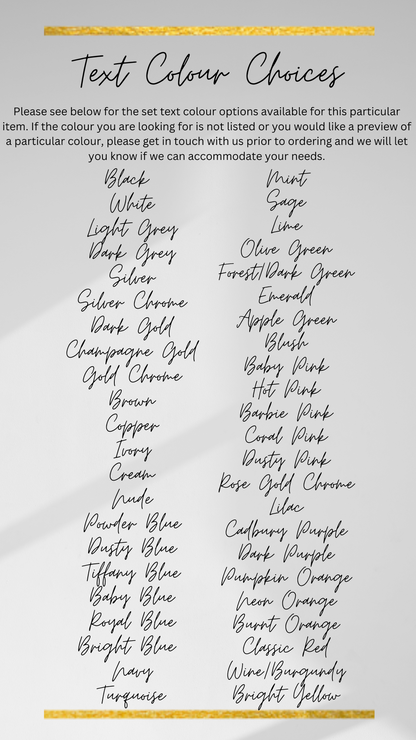 Text Colour Choices
Please see below for the set text colour options available for this particular
item. If the colour you are looking for is not listed or you would like a preview of
a particular colour, please get in touch with us prior to ordering and we will let
you know if we can accommodate your needs.
Black
White
Light Grey
Dark Grey
Silver
Silver Chrome
Dark Gold
Champagne Gold
Gold Chrome
Brown
Copper
Ivory
Cream
Nude
Powder Blue
Dusty Blue
Tiffany Blue
Baby Blue
Royal Blue
Bright Blue
Navy
Turquoise
Mint
Sage
Lime
Olive Green
Forest/Dark Green
Emerald
Apple Green
Blush
Baby Pink
Hot Pink
Barbie Pink
Coral Pink
Dusty Pink
Rose Gold Chrome
Lilac
Cadbury Purple
Dark Purple
Pumpkin Orange
Neon Orange
Burnt Orange
Classic Red
Wine/Burgundy
Bright Yellow